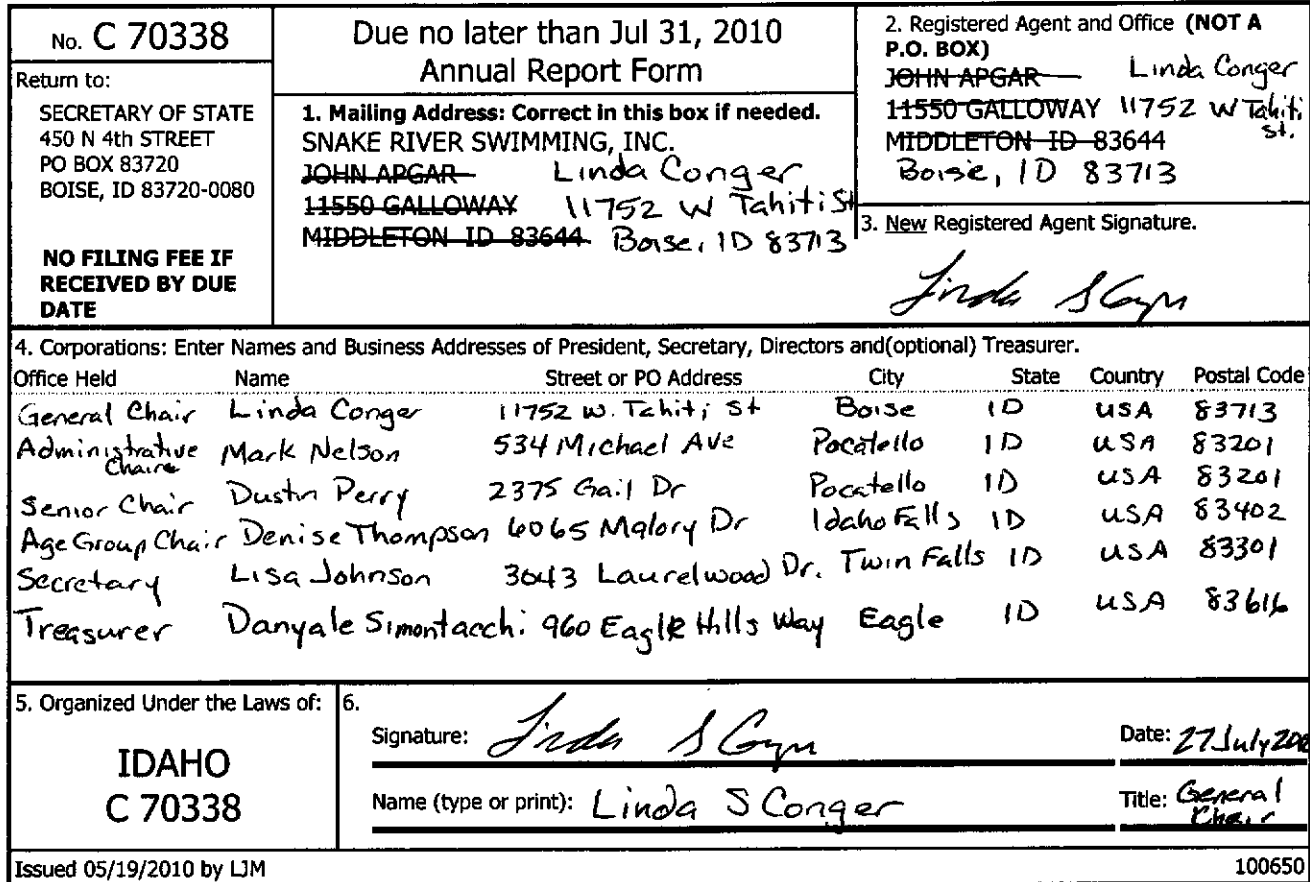 No. C 70338
Return to:
SECRETARY OF STATE
450 N 4th STREET
PO BOX 83720
BOISE, ID 83720-0080
NO FILING FEE IF
RECEIVED BY DUE
DATE
Due no later than Jul 31, 2010
Annual Report Form
1. Mailing Address: Correct in this box if needed.
SNAKE RIVER SWIMMING, INC.
JOHN APGAR Linda Conger
11550 GALLOWAY 11752 W Tahiti St
MIDDLETON ID 83644 Boise, ID 83713
2. Registered Agent and Office (NOT A
P.O. BOX)
JOHN APGAR Linda Conger
11550 GALLOWAY 11752 W Tahiti
St.
MIDDLETON ID 83644
Boise, ID 83713
3. New Registered Agent Signature.
4. Corporations: Enter Names and Business Addresses of President, Secretary, Directors and(optional) Treasurer.
Office Held Name Street or PO Address City State Country Postal Code
General Chair Linda Conger 11752 W. Tahiti St Boise ID USA 83713
Administrative Mark Nelson 534 Michael Ave Pocatello ID USA 83201
Senior Chair Dustin Perry 2375 Gail Dr Pocatello ID USA 83201
Age Group Chair Denise Thompson 6065 Malory Dr Idaho Falls ID USA 83402
Secretary Lisa Johnson 3043 Laurelwood Dr. Twin Falls ID USA 83301
Treasurer Danyale Simontacchi 960 Eagle Hills Way Eagle ID USA 83616
5. Organized Under the Laws of:
IDAHO
C 70338
6.
Signature:
Date: 27 July
Name (type or print): Linda S Conger
Title: General
Chair
Issued 05/19/2010 by LJM
100650